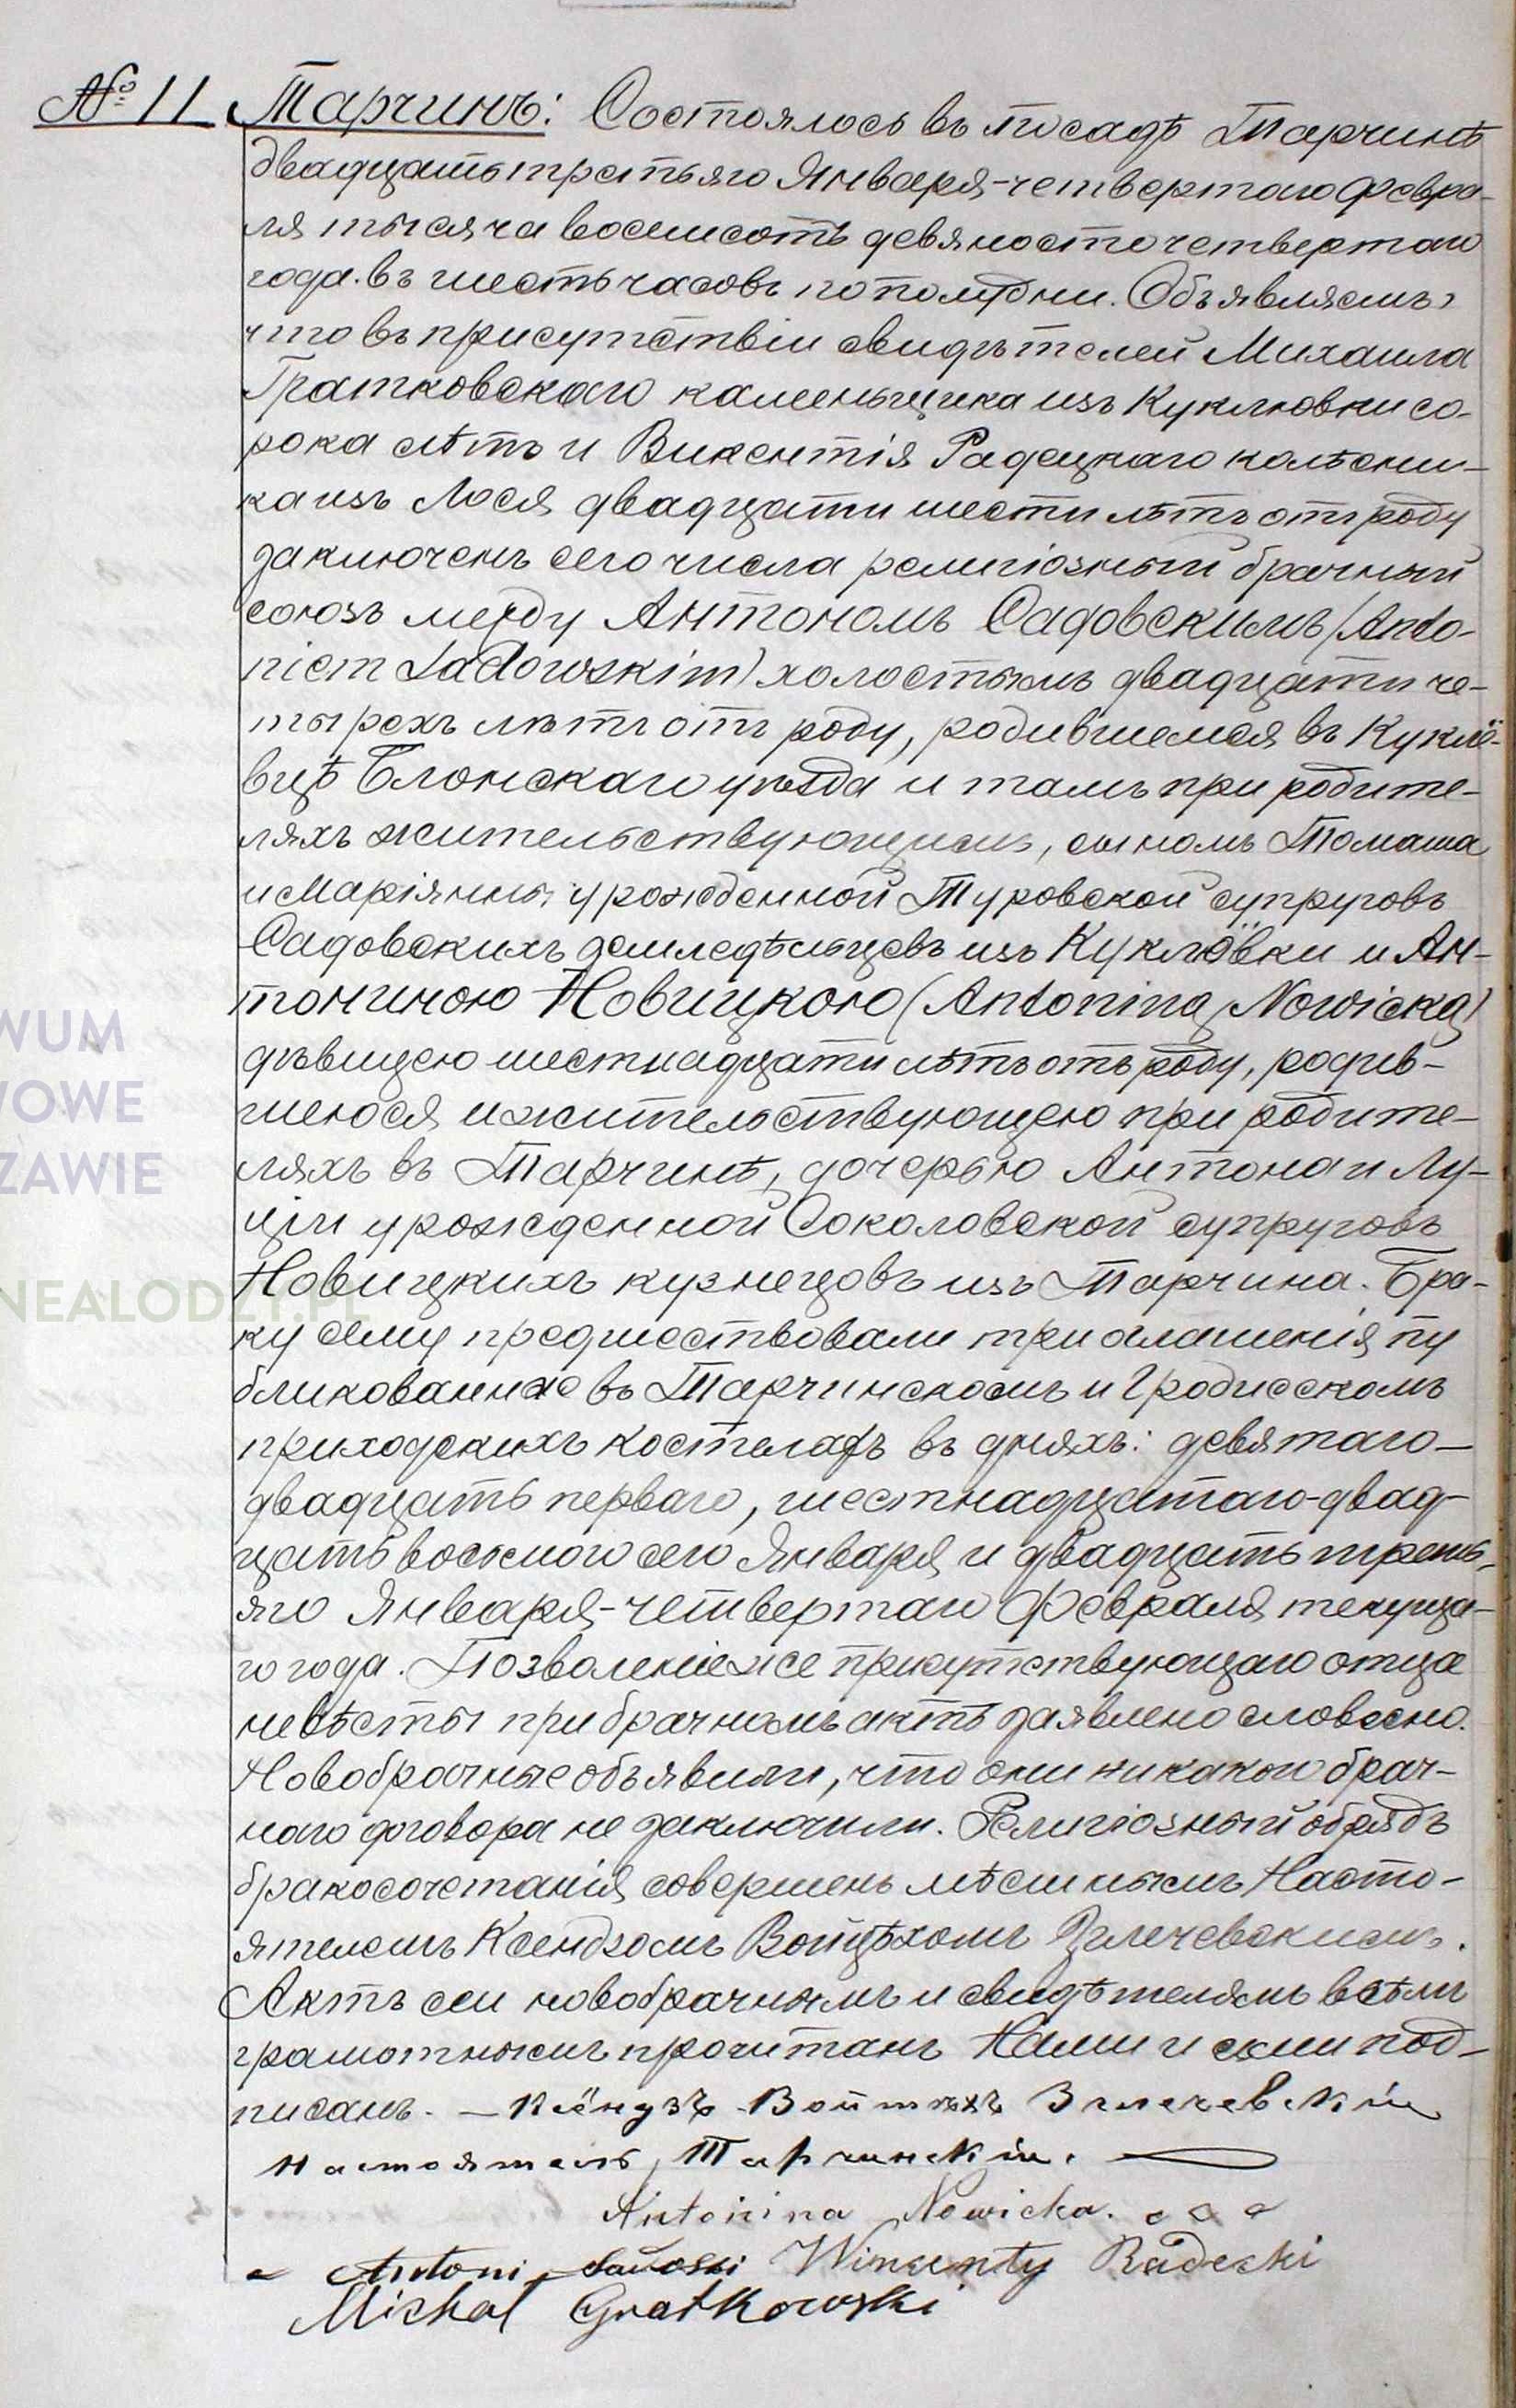 № 11 Тарчинъ: Состоялось въ посадѣ Тарчинѣ
двадцать третьяго Января-четвертаго Февра-
ля тысяча восемсотъ девяносто четвертаго
года въ шесть часовъ по полудни. Объявляемъ,
что въ присутствіи свидѣтелей Михаила
Гратковскаго каменьщика изъ Куклювки со-
рока лѣтъ и Викентія Радецкаго колѣсни-
ка изъ Лося двадцати шести лѣтъ отъ роду
заключенъ сего числа религіозный брачный
союзъ между Антономъ Садовскимъ (Anto-
niem Sadowskim) холостымъ двадцати че-
тырехъ лѣтъ отъ роду, родившемся въ Куклё-
вцѣ Блонскаго уѣзда и тамъ при родите-
ляхъ жительствующимъ, сыномъ Томаша
и Маріянны урожденной Туровской супруговъ
Садовскихъ земледѣльцевъ изъ Куклёвки и Ан-
тониною Новицкою (Antoniną Nowicką)
дѣвицею шестнадцати лѣтъ отъ роду, родив-
шеюся и жительствующею при родите-
ляхъ въ Тарчинѣ, дочерью Антона и Лу-
ціи урожденной Соколовской супруговъ
Новицкихъ кузнецовъ изъ Тарчина. Бра-
ку сему предшествовали три оглашенія пу
бликованные въ Тарчинскомъ и Гродисскомъ
приходскихъ костелахъ въ дняхъ: девятаго-
двадцать перваго, шестнадцатаго-двад-
цать восьмого сего Января и двадцать треть-
яго Января-четвертаго Февраля текуща-
го года. Позволеніе же присутствующаго отца
невѣсты при брачномъ актѣ заявлено словесно.
Новобрачные объявили, что они никакого брач-
наго договора не заключили. Религіозный обрядъ
бракосочетанія совершенъ мѣстнымъ Насто-
ятелемъ Ксендзомъ Войцѣхомъ Залечевскимъ.
Актъ сей новобрачнымъ и свидѣтелямъ всѣмъ
грамотнымъ прочитанъ Нами и ими под-
писанъ. — Ксёндзъ Войтѣхъ Залечевскій
Настоятель Тарчинскій.
Antonina Nowicka.
Antoni Sadoski Wincenty Radecki
Michal Gratkowski
WUM
WOWE
ZAWIE
NEALODZY.PL